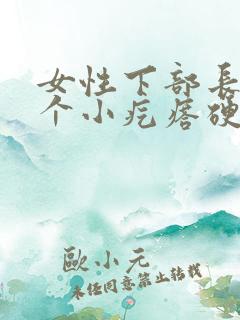 女性下部長
个小疙瘩硬
歐小元
未经同意禁止转载